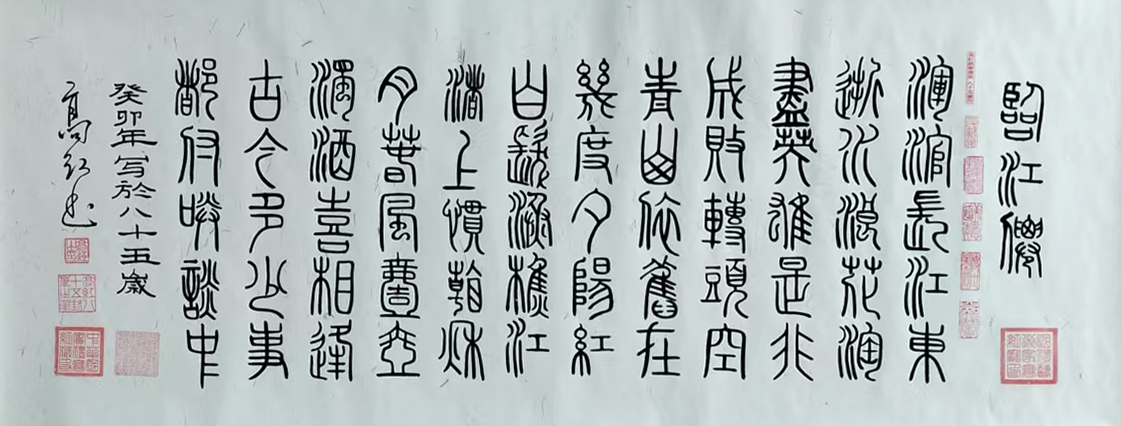 臨江僊
滾滾長江東
逝水浪花淘
盡英雄是非
成敗轉頭空
青山依舊在
幾度夕陽紅
白髮漁樵江
渚上慣看秋
月春風壹壺
濁酒喜相逢
古今多少事
都付笑談中
癸卯年写於八十五歲
高红书